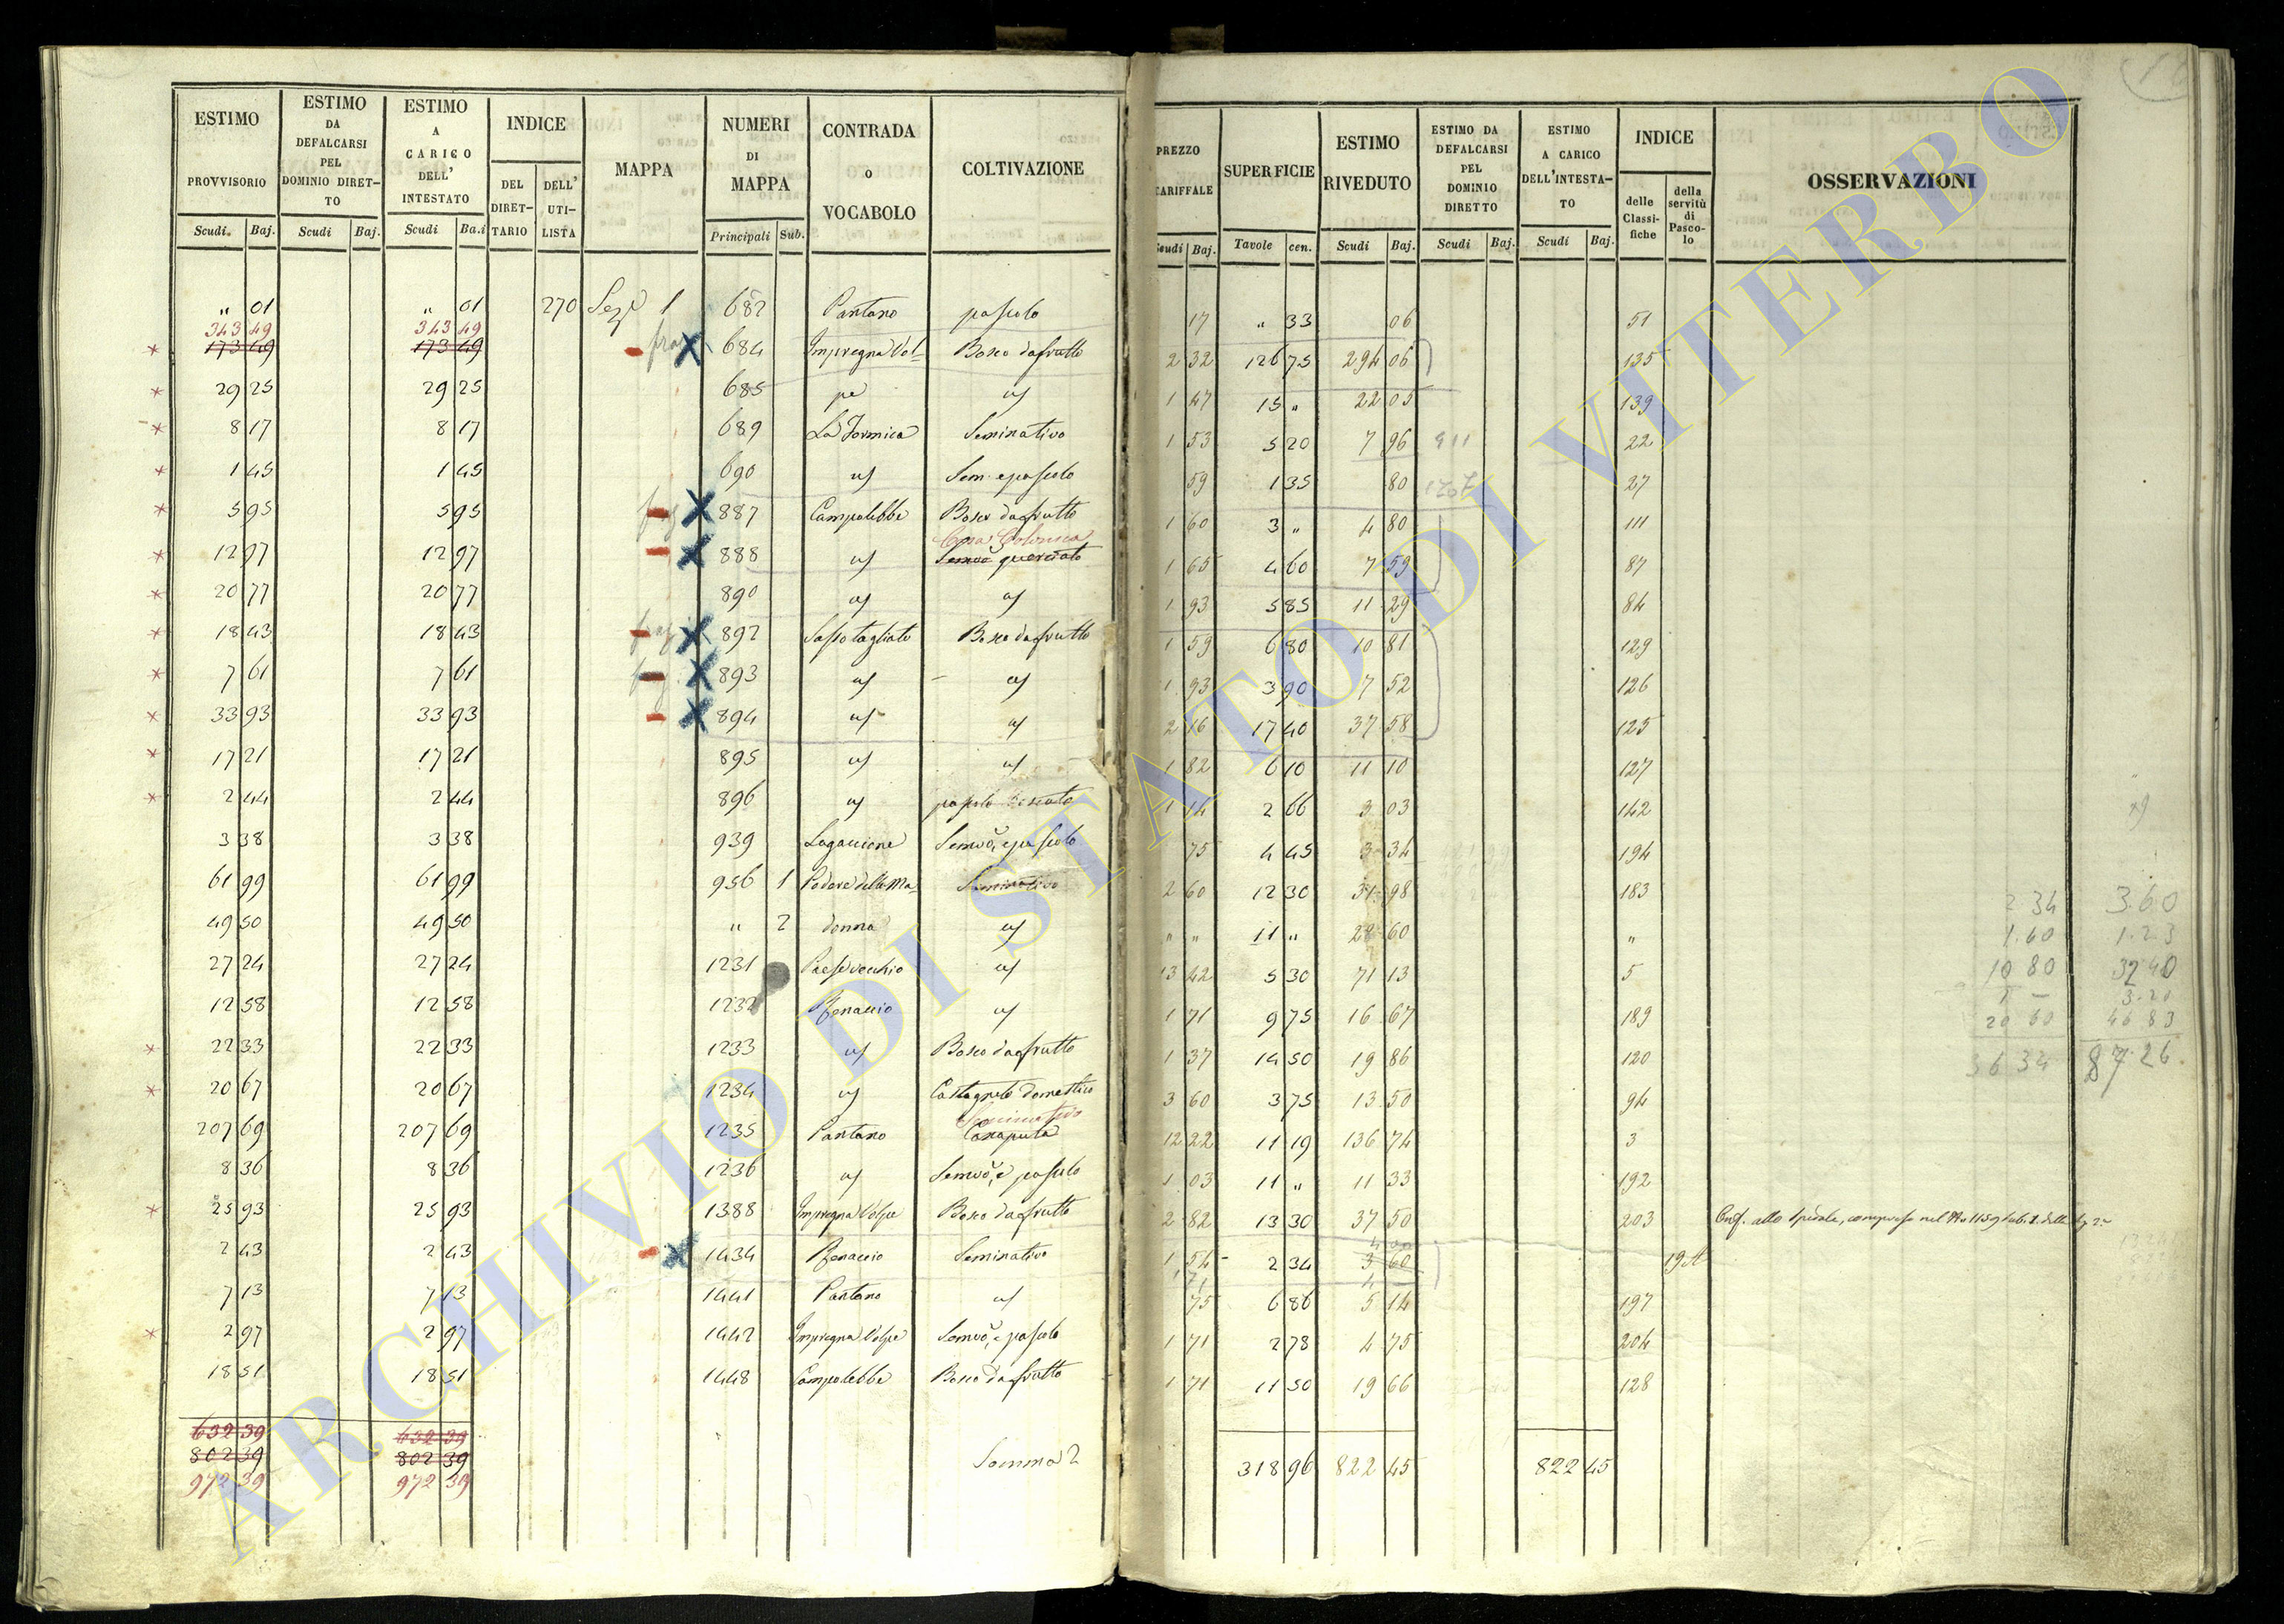 ESTIMO PROVVISORIO | ESTIMO DA DEFALCARSI PEL DOMINIO DIRET-TO | ESTIMO A CARICO DELL' INTESTATO | INDICE | MAPPA | NUMERI DI MAPPA | CONTRADA o VOCABOLO | COLTIVAZIONE | PREZZO TARIFFALE | SUPERFICIE | ESTIMO RIVEDUTO | ESTIMO DA DEFALCARSI PEL DOMINIO DIRETTO | ESTIMO A CARICO DELL'INTESTA-TO | INDICE | OSSERVAZIONI
DEL DIRET-TARIO | DELL' UTI-LISTA | delle Classi-fiche | della servitù di Pasco-lo
Scudi. | Baj. | Scudi | Baj. | Scudi | Ba.i | Principali | Sub. | Scudi | Baj. | Tavole | cen. | Scudi | Baj. | Scudi | Baj. | Scudi | Baj.
" 01 | " 01 | 270 | Sez. 1 | 682 | Pantano | pascolo | 17 | " 33 | 06 | 51
343 49 | 343 49
173 49 | 173 49 | 684 | Impregna Vol- | Bosco da frutto | 2 32 | 126 75 | 294 06 | 135
29 25 | 29 25 | 685 | pe | " | 1 47 | 15 " | 22 05 | 139
8 17 | 8 17 | 689 | La Formica | Seminativo | 1 53 | 5 20 | 7 96 | 22
1 45 | 1 45 | 690 | " | Sem. e pascolo | 59 | 1 35 | 80 | 27
5 95 | 5 95 | 887 | Campolebbe | Bosco da frutto | 1 60 | 3 " | 4 80 | 111
Casa Colonica
12 97 | 12 97 | 888 | " | Semvo querciato | 1 65 | 4 60 | 7 59 | 87
20 77 | 20 77 | 890 | " | " | 1 93 | 5 85 | 11 29 | 84
18 43 | 18 43 | 892 | Sasso tagliato | Bosco da frutto | 1 59 | 6 80 | 10 81 | 129
7 61 | 7 61 | 893 | " | " | 1 93 | 3 90 | 7 52 | 126
33 93 | 33 93 | 894 | " | " | 2 16 | 17 40 | 37 58 | 125
17 21 | 17 21 | 895 | " | " | 1 82 | 6 10 | 11 10 | 127
2 44 | 2 44 | 896 | " | pascolo boscato | 1 14 | 2 66 | 3 03 | 142
3 38 | 3 38 | 939 | Lagaccione | Semvo, e pascolo | 75 | 4 45 | 3 34 | 194
61 99 | 61 99 | 956 | 1 | Podere della Ma- | Seminativo | 2 60 | 12 30 | 31 98 | 183
49 50 | 49 50 | " | 2 | donna | " | " " | 11 " | 28 60 | "
27 24 | 27 24 | 1231 | Paese vecchio | " | 13 42 | 5 30 | 71 13 | 5
12 58 | 12 58 | 1232 | Renaccio | " | 1 71 | 9 75 | 16 67 | 189
22 33 | 22 33 | 1233 | " | Bosco da frutto | 1 37 | 14 50 | 19 86 | 120
20 67 | 20 67 | 1234 | " | Castagneto domestico | 3 60 | 3 75 | 13 50 | 94
Seminativo
207 69 | 207 69 | 1235 | Pantano | Canaputa | 12 22 | 11 19 | 136 74 | 3
8 36 | 8 36 | 1236 | " | Semvo, e pascolo | 1 03 | 11 " | 11 33 | 192
25 93 | 25 93 | 1388 | Impregna Volpe | Bosco da frutto | 2 82 | 13 30 | 37 50 | 203
2 43 | 2 43 | 1434 | Renaccio | Seminativo | 1 54 | 2 34 | 3 60 | 19
7 13 | 7 13 | 1441 | Pantano | " | 75 | 6 86 | 5 14 | 197
2 97 | 2 97 | 1442 | Impregna Volpe | Semvo, e pascolo | 1 71 | 2 78 | 4 75 | 204
18 51 | 18 51 | 1448 | Campolebbe | Bosco da frutto | 1 71 | 11 50 | 19 66 | 128
632 39 | 632 39
802 39 | 802 39 | Somma 2 | 318 96 | 822 45 | 822 45
972 39 | 972 39
2 34 | 3.60
1.60 | 1.23
10 80 | 32 40
20 60 | 46 83
36 34 | 87.26.
ARCHIVIO DI STATO DI VITERBO